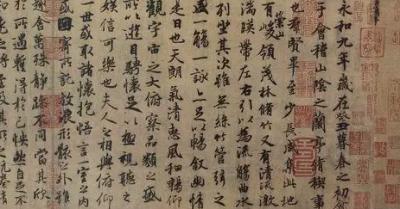 永和九年歲在癸丑暮春之初
于會稽山陰之蘭亭脩稧事
也群賢畢至少長咸集此地
有崇山峻領茂林脩竹又有清流激
湍暎帶左右引以為流觴曲水
列坐其次雖無絲竹管弦之
盛一觴一詠亦足以暢敘幽情
是日也天朗氣清惠風和暢仰
觀宇宙之大俯察品類之盛
所以遊目騁懷足以極視聽之
娛信可樂也夫人之相與俯仰
一世或取諸懷抱悟言一室之內
因寄所託放浪形骸之外雖
趣舍萬殊靜躁不同當其欣
於所遇暫得於己怏然自足不